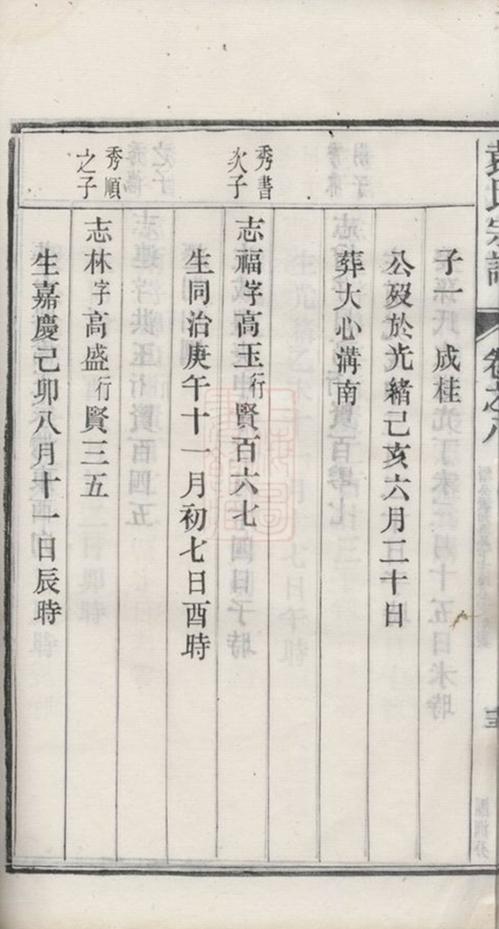 氏宗譜
卷之八
子一 成桂
公歿於光緒己亥六月二十日
葬大心溝南
秀書
次子
志福字高玉行賢百六七
生同治庚午十一月初七日酉時
秀順
之子
志林字高盛行賢三五
生嘉慶己卯八月十一日辰時